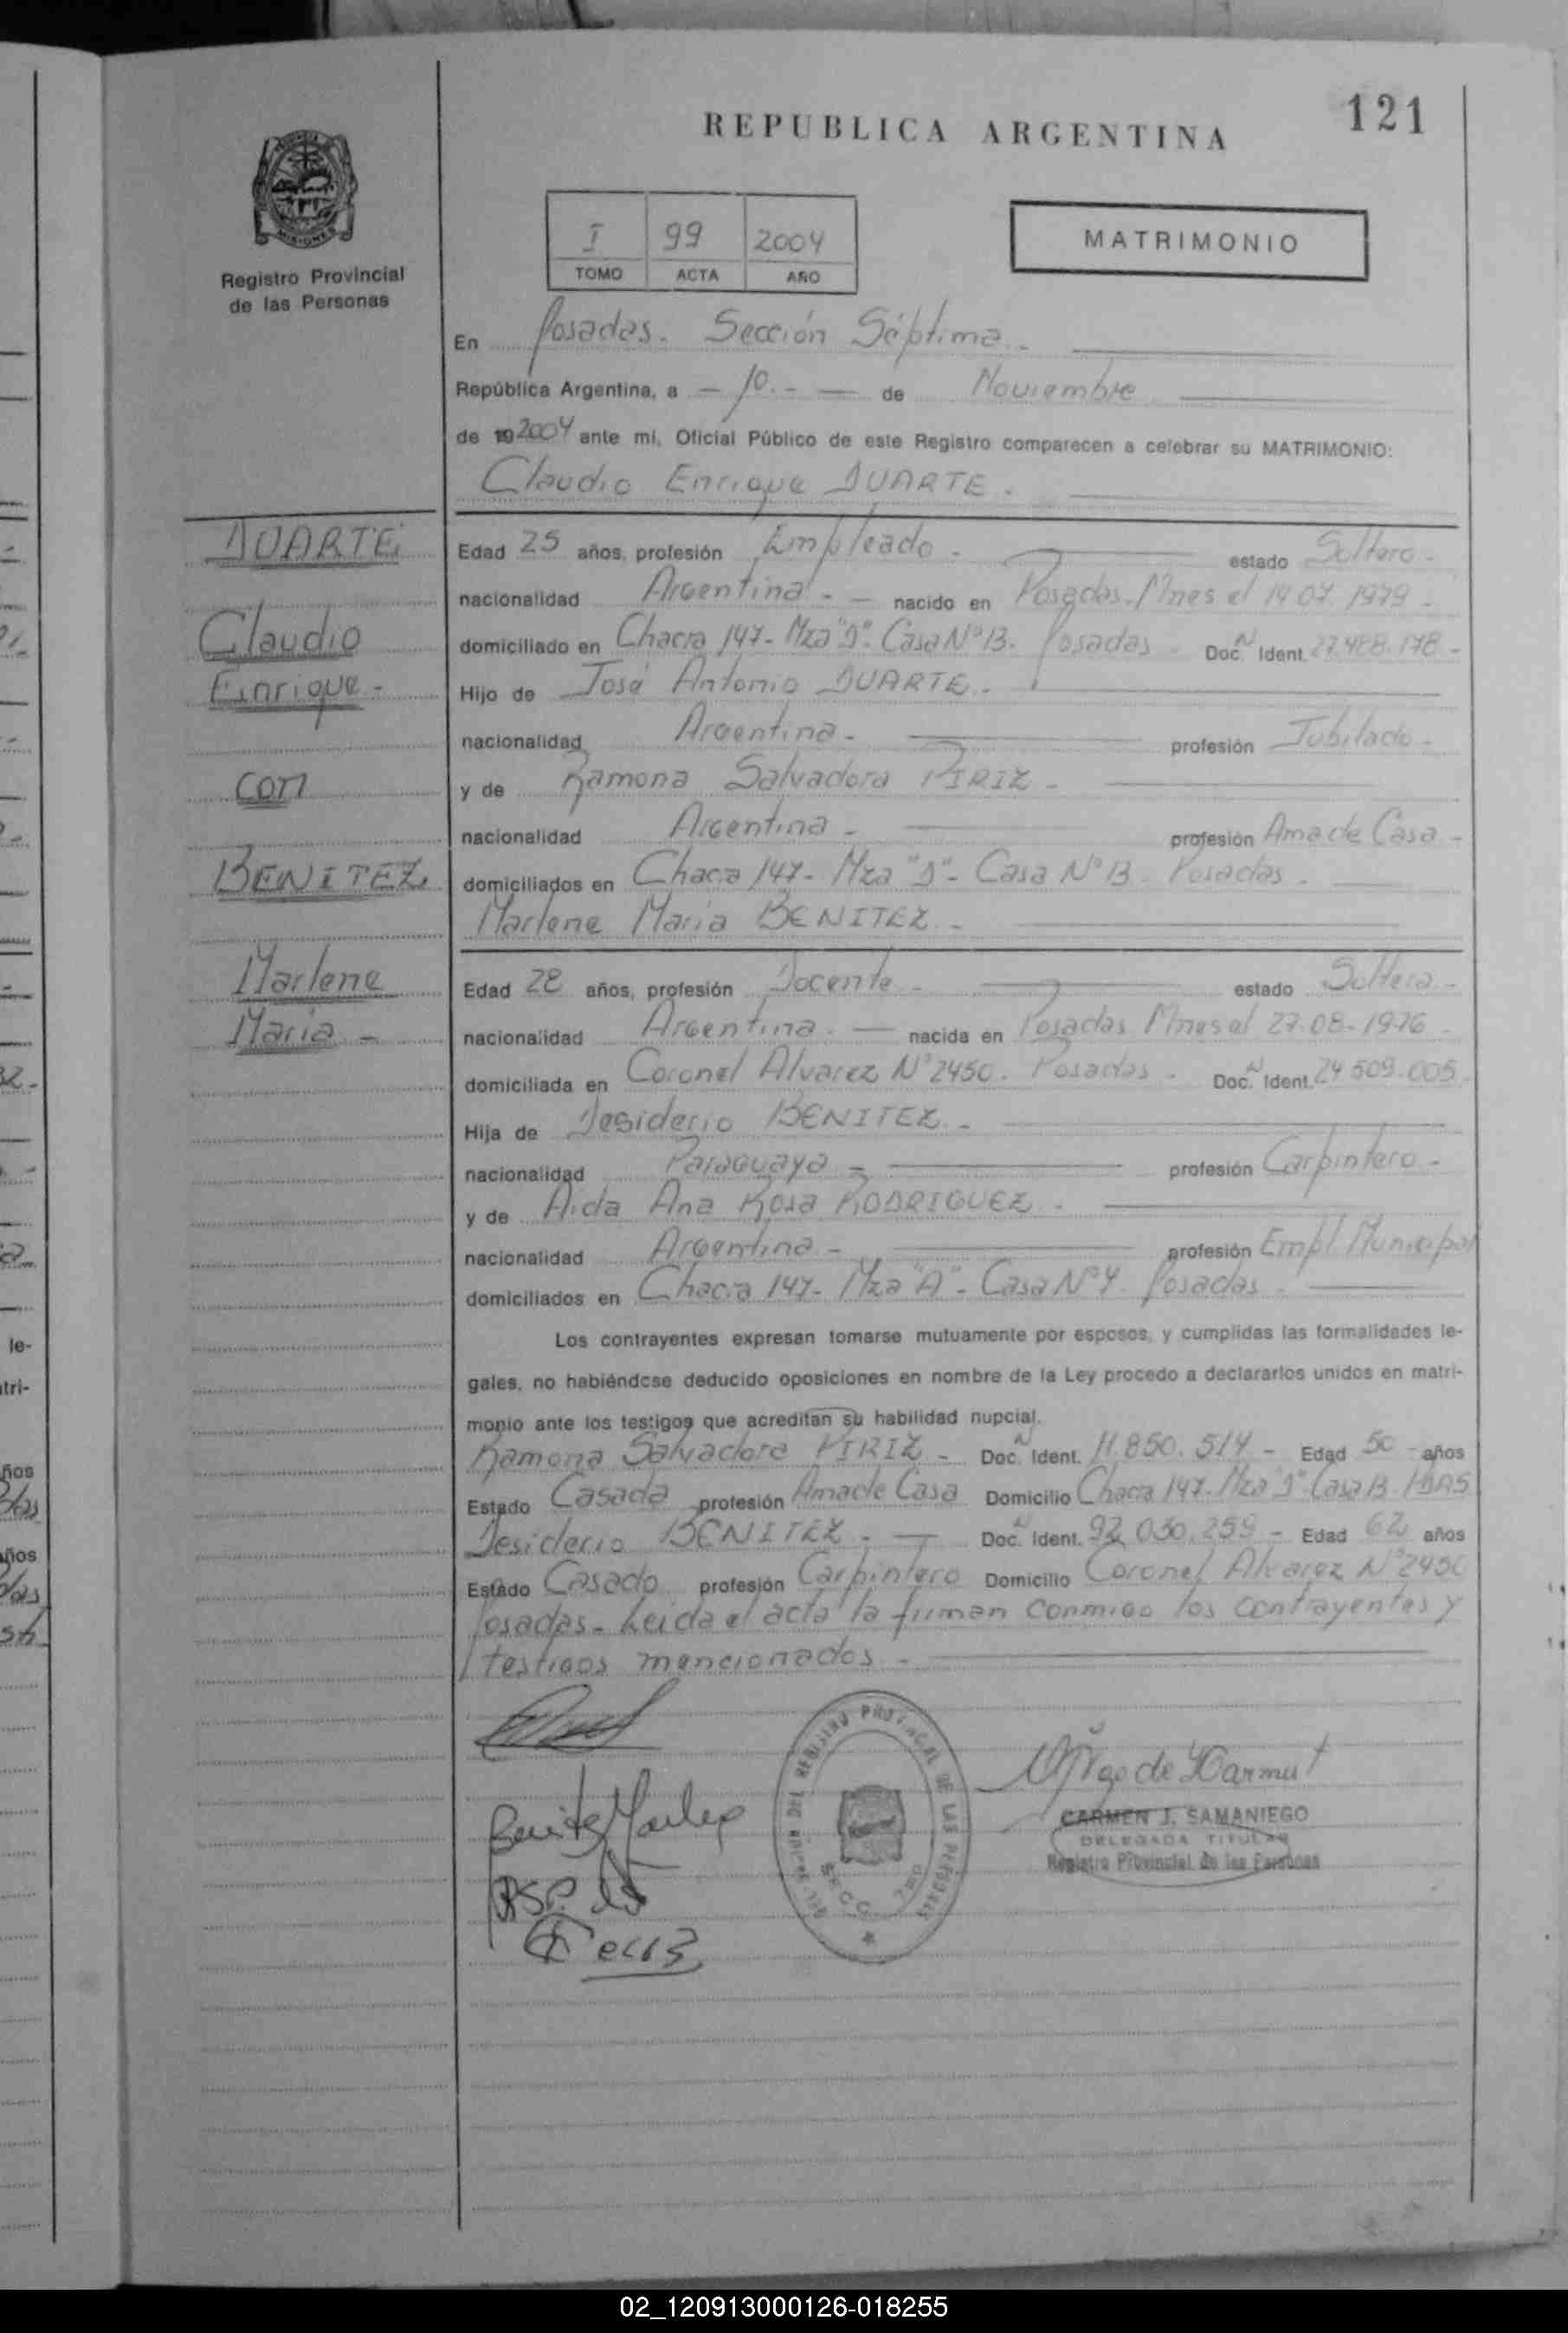 121
REPUBLICA ARGENTINA
MISIONES
Registro Provincial
de las Personas
I 99 2004
TOMO ACTA AÑO
MATRIMONIO
En Posadas. Sección Séptima.
República Argentina, a - 10. - de Noviembre
de 19 2004 ante mí, Oficial Público de este Registro comparecen a celebrar su MATRIMONIO:
Claudio Enrique DUARTE.
DUARTE
Claudio
Enrique -
con
BENITEZ
Marlene
Maria -
Edad 25 años, profesión Empleado - estado Soltero -
nacionalidad Argentina - - nacido en Posadas - Mnes el 19 07 1979 -
domiciliado en Chacra 147 - Mza "D" - Casa Nº 13 - Posadas - Doc. N Ident. 27.488.178 -
Hijo de José Antonio DUARTE -
nacionalidad Argentina - profesión Jubilado -
y de Ramona Salvadora PIRIZ -
nacionalidad Argentina - profesión Ama de Casa -
domiciliados en Chacra 147 - Mza "D" - Casa Nº 13 - Posadas -
Marlene Maria BENITEZ -
Edad 28 años, profesión Docente - estado Soltera -
nacionalidad Argentina - nacida en Posadas Mnes el 27-08-1976 -
domiciliada en Coronel Alvarez Nº 2450 - Posadas - Doc. N Ident. 24 509-005
Hija de Desiderio BENITEZ -
nacionalidad Paraguaya - profesión Carpintero -
y de Aida Ana Rosa RODRIGUEZ -
nacionalidad Argentina - profesión Empl Municipal
domiciliados en Chacra 147 - Mza "A" - Casa Nº 4 - Posadas -
Los contrayentes expresan tomarse mutuamente por esposos, y cumplidas las formalidades le-
gales, no habiéndose deducido oposiciones en nombre de la Ley procedo a declararlos unidos en matri-
monio ante los testigos que acreditan su habilidad nupcial.
Ramona Salvadora PIRIZ - Doc. N Ident. 11.850.514 - Edad 50 - años
Estado Casada profesión Ama de Casa Domicilio Chacra 147 - Mza "D" Casa 13 - PDAS
Desiderio BENITEZ - Doc. N Ident. 92.030.259 - Edad 62 años
Estado Casado profesión Carpintero Domicilio Coronel Alvarez Nº 2450
Posadas - Leida el acta la firman conmigo los contrayentes y
testigos mencionados -
Benitez Marlene
CARMEN J. SAMANIEGO
DELEGADA TITULAR
Registro Provincial de las Personas
02_120913000126-018255